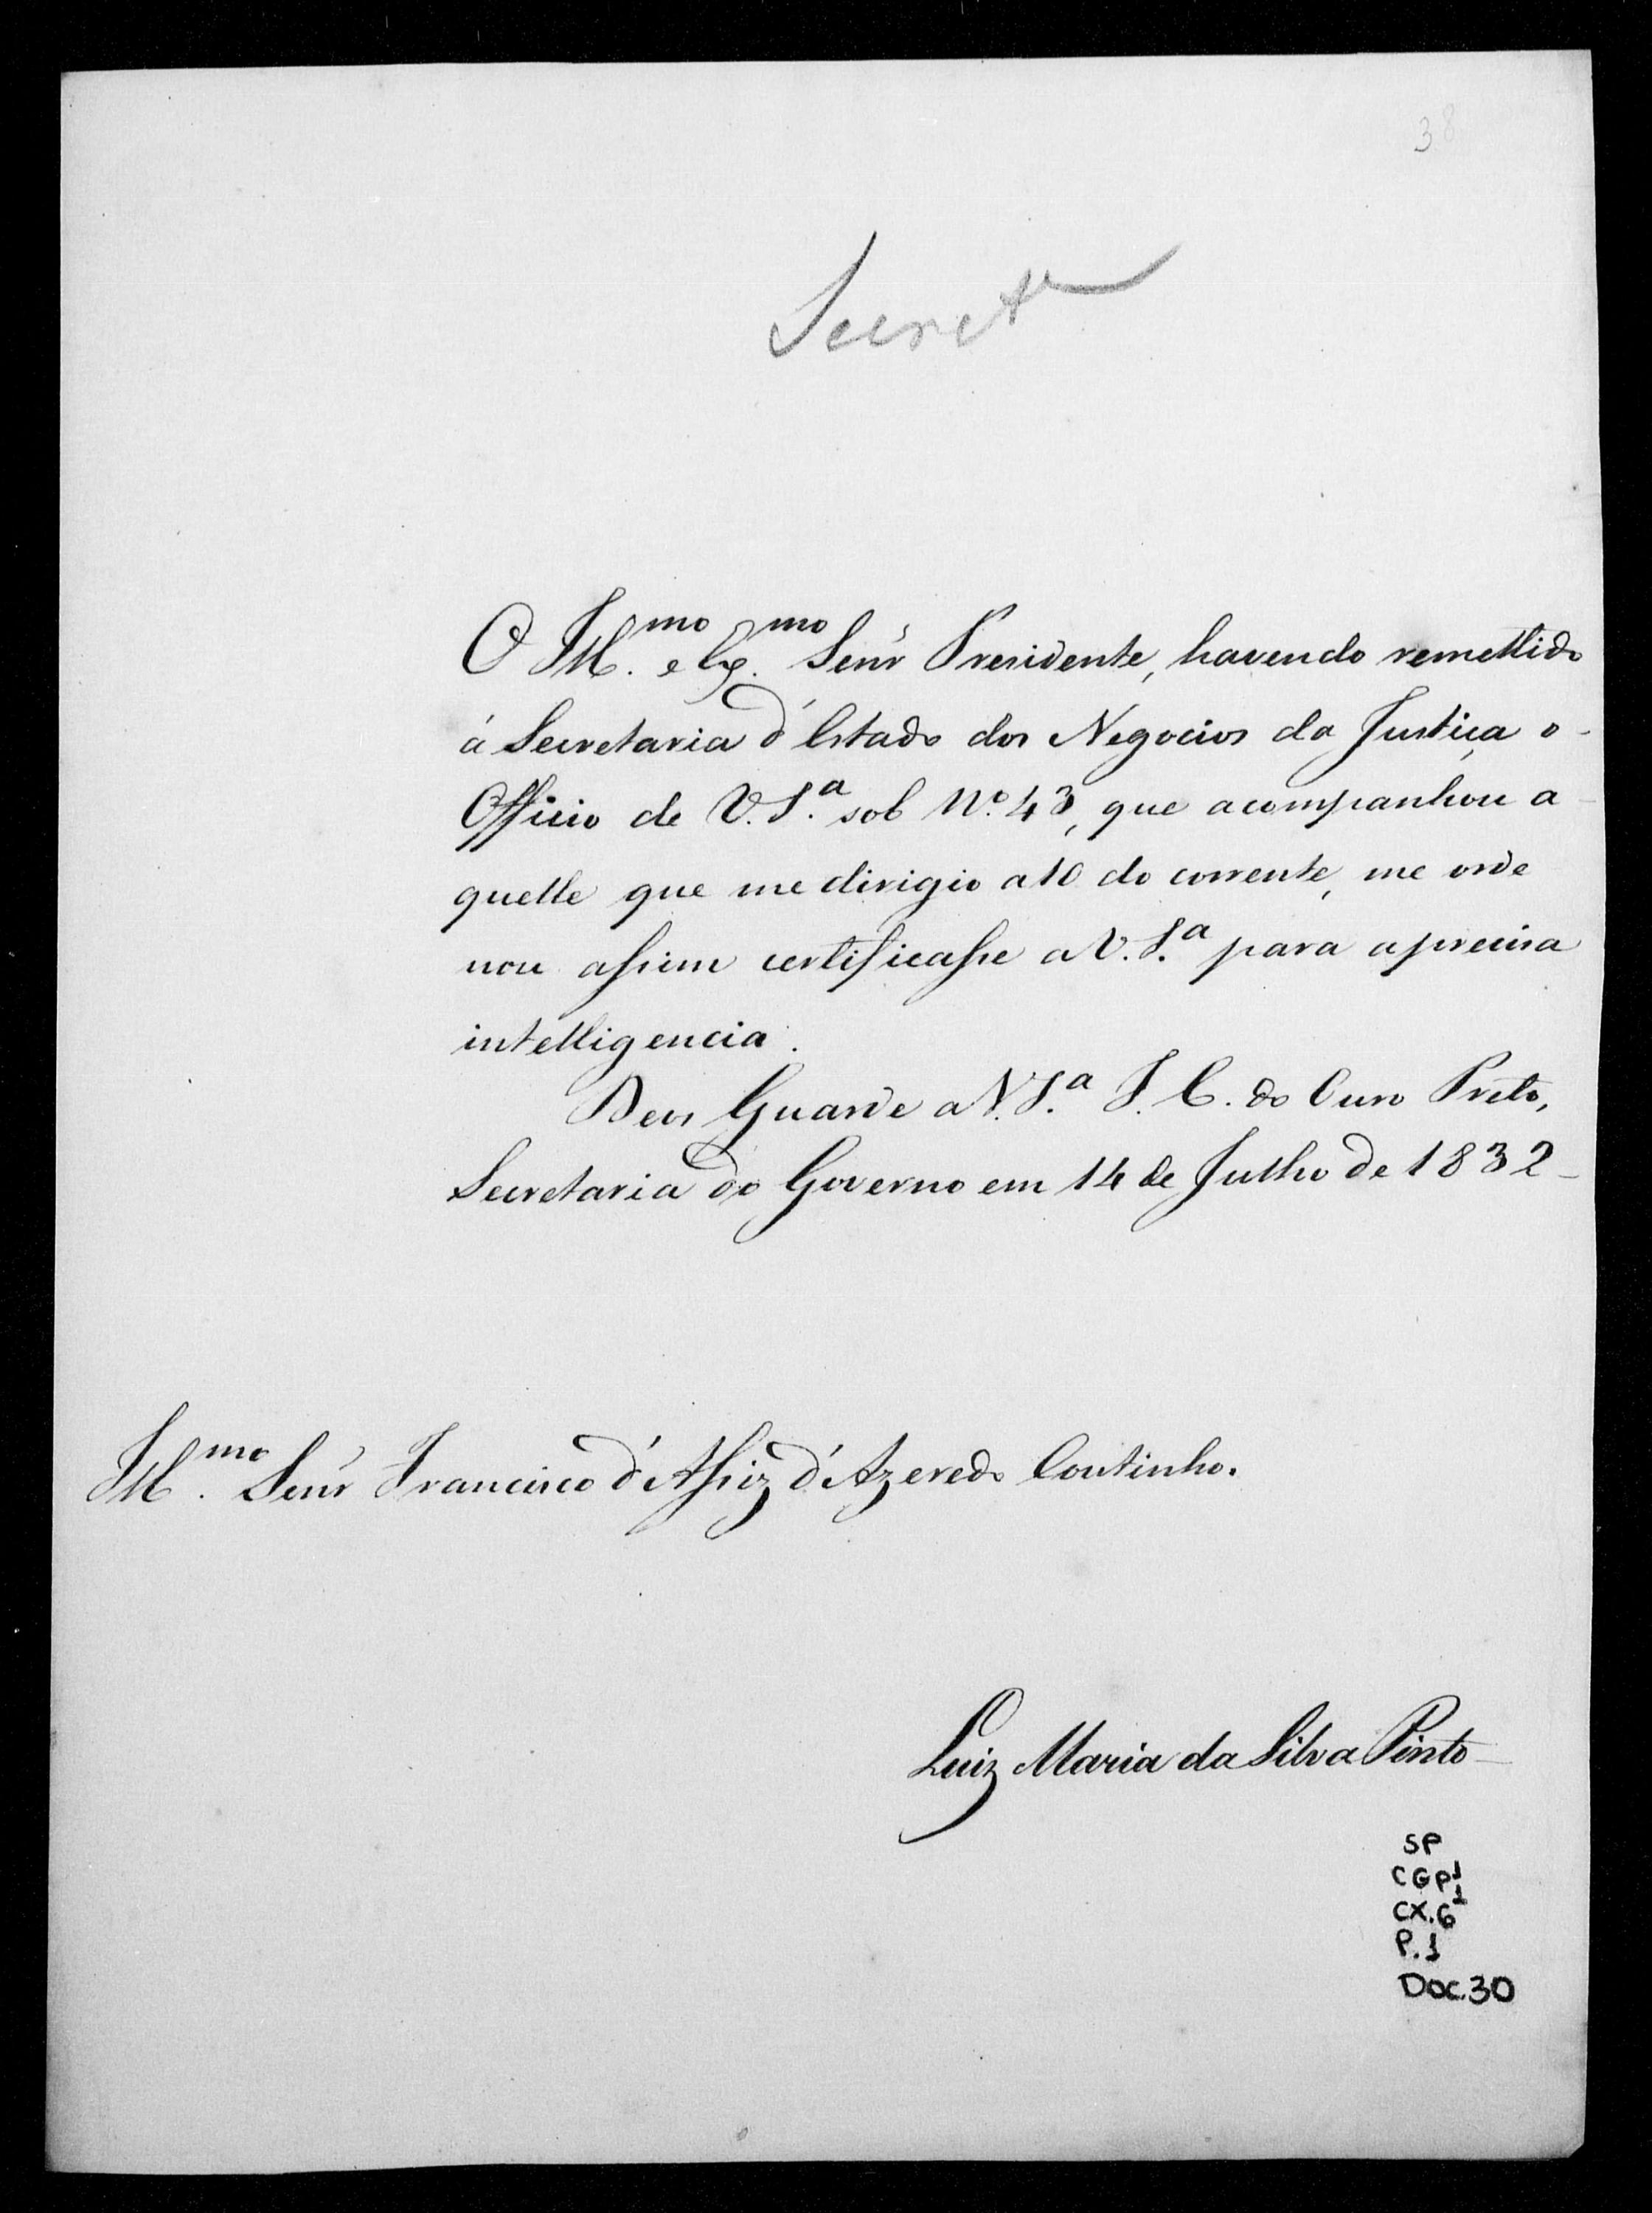 38
Secretr
O Illmo. e Exmo. Senr Presidente, havendo remettido
á Secretaria d'Estado dos Negocios da Justiça o
Officio de V.S.a sob No. 43, que acompanhou a
quelle que me dirigio a 10 do corrente, me orde
nou assim certificasse a V.S.a para a precisa
intelligencia.
Deos Guarde a V.S.a I. C. do Ouro Preto,
Secretaria do Governo em 14 de Julho de 1832
Illmo. Senr Francisco d'Assiz d'Azeredo Coutinho.
Luiz Maria da Silva Pinto
SP
CGP1
CX.6
P.1
Doc.30